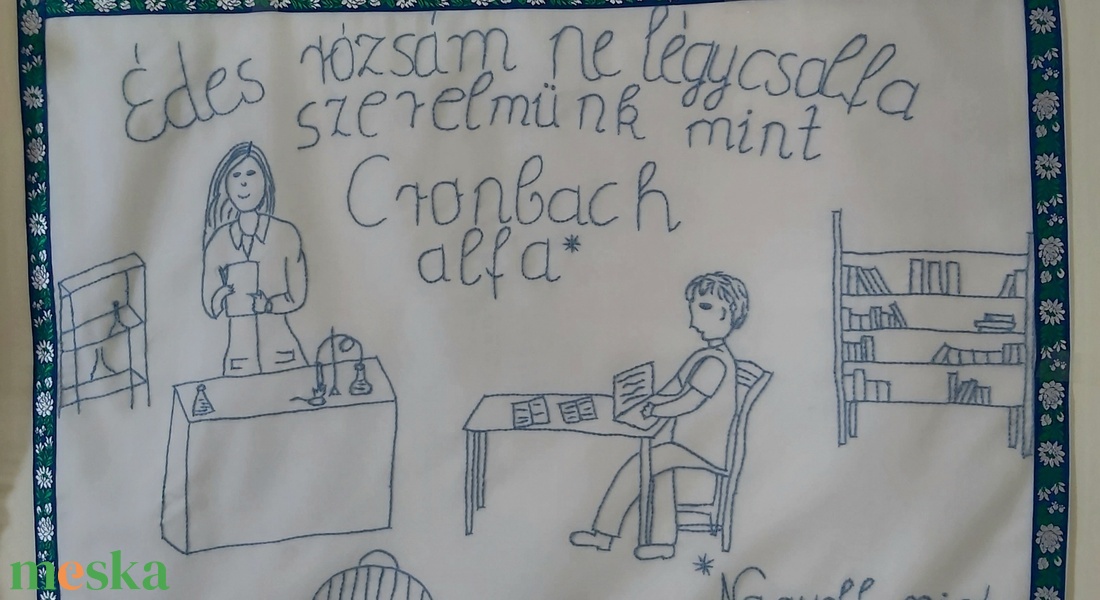 Édes rózsám ne légy csalfa
szerelmünk mint
Cronbach
alfa*
*
meska